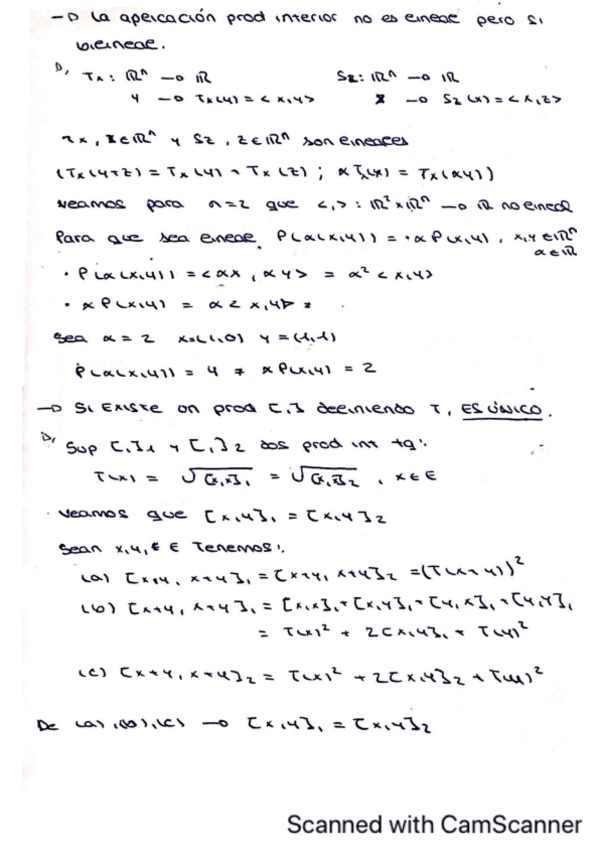 → La aplicación prod interior no es lineal pero si
bilineal.
D, Tx: ℝⁿ → ℝ Sz: ℝⁿ → ℝ
y → Tx(y) = <x,y> x → Sz(x) = <x,z>
Tx, x∈ℝⁿ y Sz, z∈ℝⁿ son lineales
(Tx(y+z) = Tx(y) + Tx(z) ; αTx(x) = Tx(αy))
Veamos para n=2 que <,> : ℝ²×ℝⁿ → ℝ no lineal
Para que sea lineal, P(α(x,y)) = ·αP(x,y), x,y∈ℝⁿ
α∈ℝ
· P(α(x,y)) = <αx, αy> = α² <x,y>
· αP(x,y) = α<x,y> =
Sea α = 2 x=(1,0) y = (1,1)
P(α(x,y)) = 4 ≠ αP(x,y) = 2
→ Si EXISTE un prod [,] definiendo T, ES ÚNICO.
D, Sup [,]₁ y [,]₂ dos prod int tq:
T(x) = √[x,x]₁ = √[x,x]₂, x∈E
· Veamos que [x,y]₁ = [x,y]₂
Sean x,y,∈ E Tenemos:
(a) [x+y, x+y]₁ = [x+y, x+y]₂ = (T(x+y))²
(b) [x+y, x+y]₁ = [x,x]₁+[x,y]₁+[y,x]₁+[y,y]₁
= T(x)² + 2[x,y]₁ + T(y)²
(c) [x+y, x+y]₂ = T(x)² + 2[x,y]₂ + T(y)²
De (a),(b),(c) → [x,y]₁ = [x,y]₂
Scanned with CamScanner